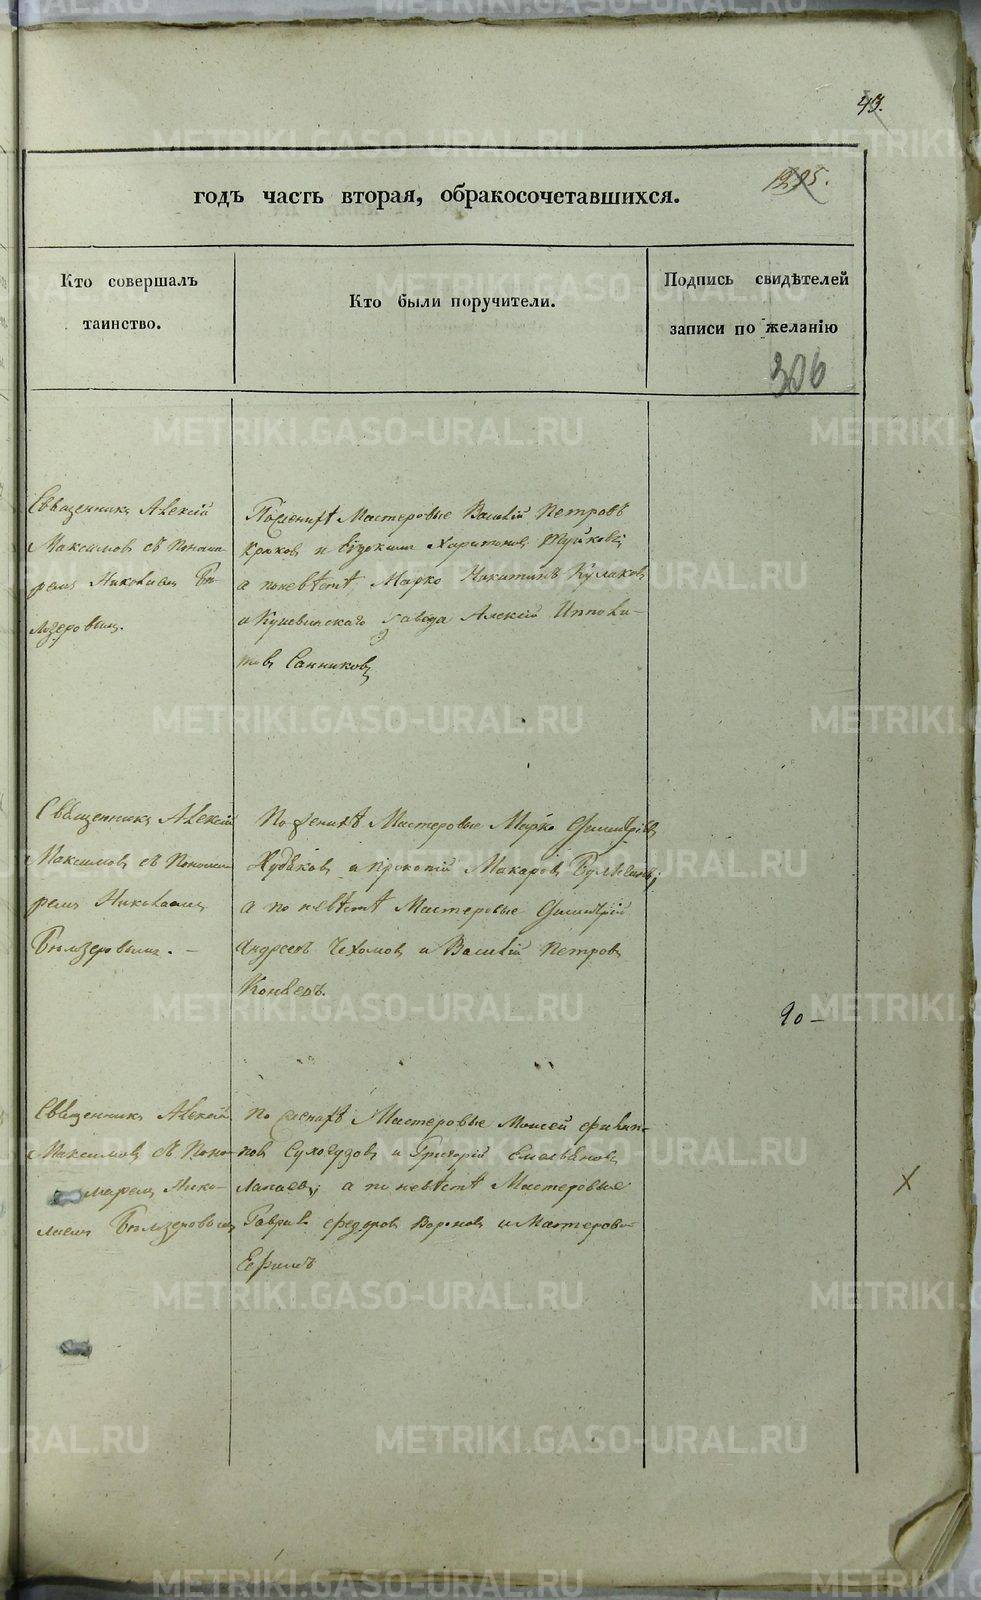 43.
1295.
годъ часть вторая, обракосочетавшихся.
Кто совершалъ
таинство.
Кто были поручители.
Подпись свидѣтелей
записи по желанію
306
Священникъ Алексій
Максимовъ съ Понома-
ремъ Николаемъ Бѣ-
лозеровымъ.
По женихѣ Мастеровые Василій Петровъ
Крюковъ и Евдокимъ Харитоновъ
а по невѣстѣ, Марко Никитинъ Кулаковъ
и Кушвинскаго завода Алексій Ипполи-
товъ Санниковъ
Священникъ Алексій
Максимовъ съ Понома-
ремъ Николаемъ
Бѣлозеровымъ. —
По женихѣ Мастеровые Марко Димитріевъ
Худяковъ и Прокопій Макаровъ
а по невѣстѣ Мастеровые Димитрій
Андреевъ Чехомовъ и Василій Петровъ
90 –
Священникъ Алексій
Максимовъ съ Поно-
маремъ Нико-
лаемъ Бѣлозеровымъ
По женихѣ Мастеровые Моисей Филип-
повъ и Григорій Емельяновъ
а по невѣстѣ Мастеровые
Гаврило Федоровъ Вороновъ и Мастеровой
Ефимъ
METRIKI.GASO-URAL.RU